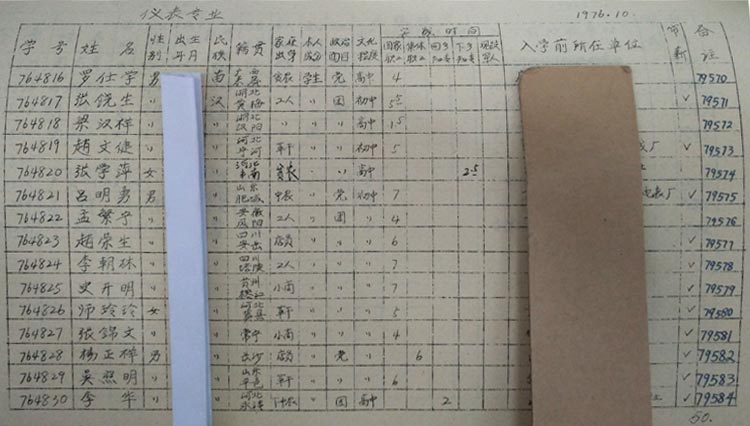 仪表专业 1976.10.
学号 姓名 性别 出生年月 民族 籍贯 家庭出身 本人成分 政治面目 文化程度 实践时间 国家职工 集体职工 回乡知青 下乡知青 现役军人 入学前所在单位 备注
764816 罗仕宇 男 苗 贫农 学生 党 高中 4 79570
764817 张锐生 〃 汉 湖北黄梅 工人 〃 团 初中 5.5 ✓ 79571
764818 梁汉祥 〃 〃 湖北汉阳 〃 〃 〃 高中 1.5 79572
764819 赵文健 〃 〃 河北 革干 〃 〃 初中 5 厂 ✓ 79573
764820 张学萍 女 〃 〃 高中 2.5 79574
764821 吕明勇 男 〃 山东肥城 中农 〃 党 初中 7 电表厂 ✓ 79575
764822 孟繁宁 〃 〃 安徽凤阳 工人 〃 团 〃 4 79576
764823 赵荣生 〃 〃 四川安岳 店员 〃 〃 〃 6 ✓ 79577
764824 李朝林 〃 〃 四川 工人 〃 〃 〃 7 ✓ 79578
764825 史开明 〃 〃 贵州 小商 〃 〃 〃 7 ✓ 79579
764826 师玲玲 女 〃 河北 革干 〃 〃 〃 5 ✓ 79580
764827 张锦文 〃 〃 常宁 小商 〃 〃 〃 4 ✓ 79581
764828 杨正祥 男 〃 长沙 店员 〃 党 〃 6 ✓ 79582
764829 吴照明 〃 〃 山东 革干 〃 〃 〃 6 ✓ 79583
764830 李华 〃 〃 河北 下中农 〃 团 高中 2 ✓ 79584
50.